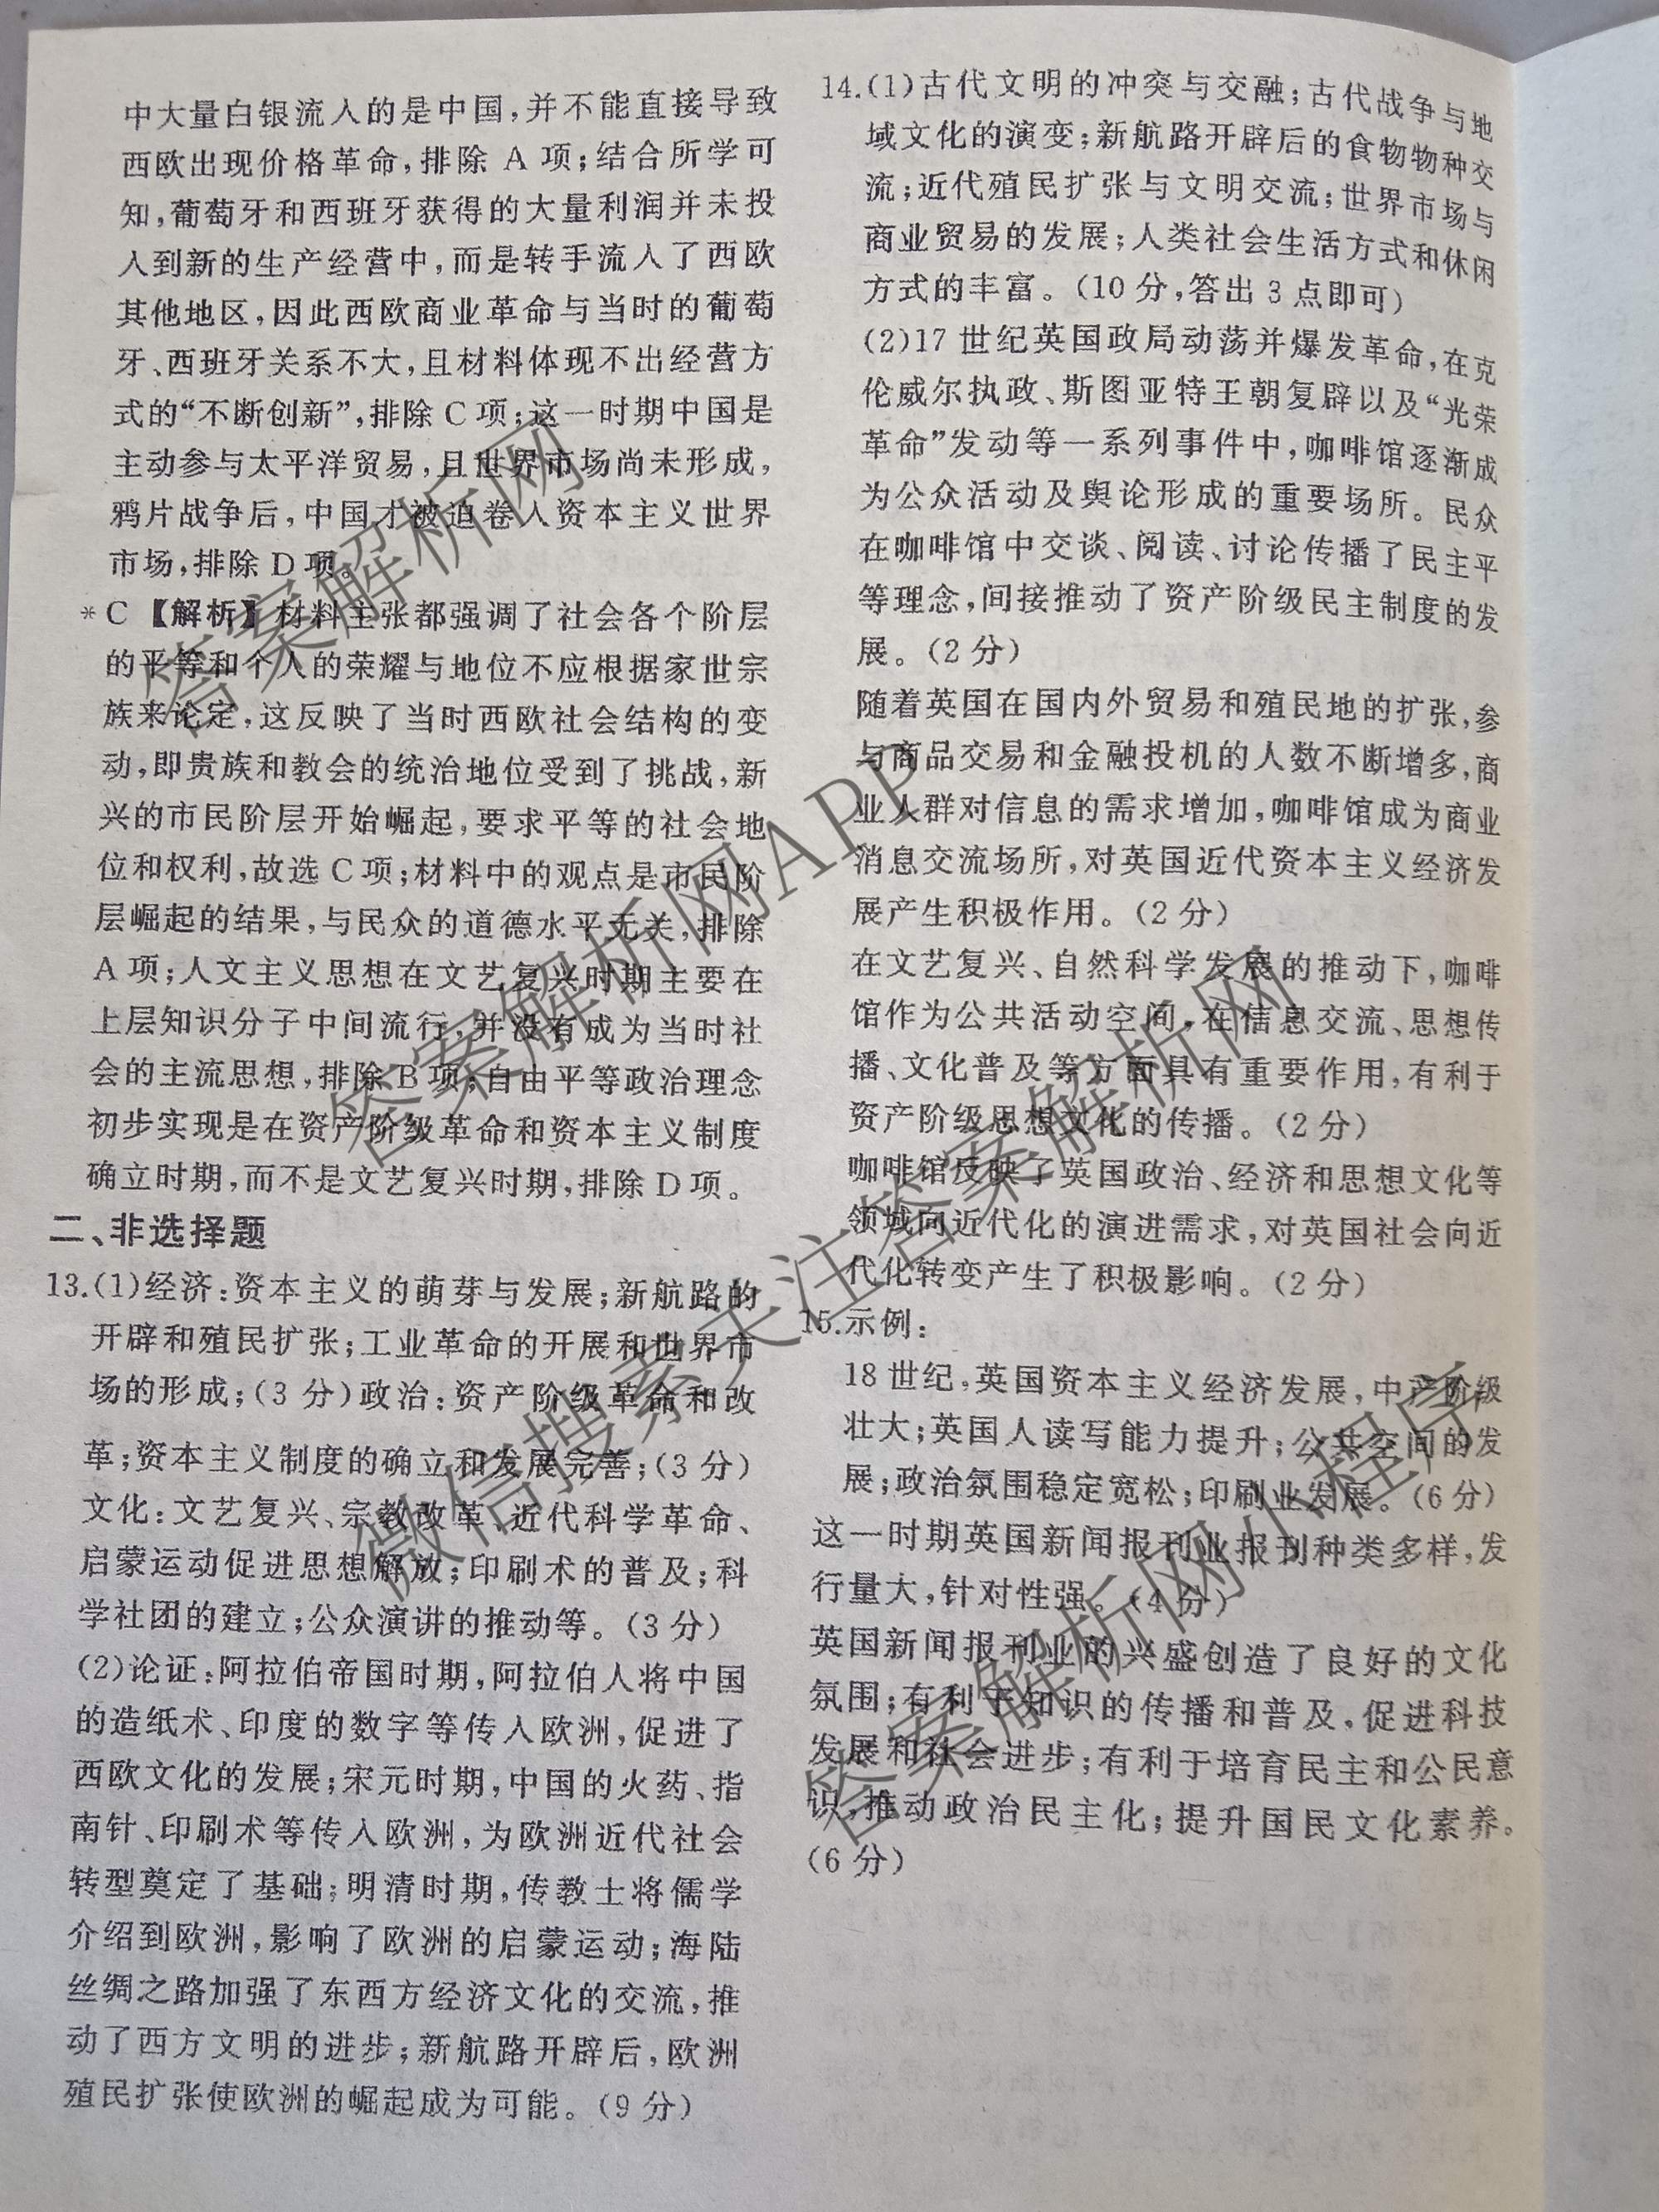 中大量白银流入的是中国,并不能直接导致
西欧出现价格革命,排除 A 项;结合所学可
知,葡萄牙和西班牙获得的大量利润并未投
入到新的生产经营中,而是转手流入了西欧
其他地区,因此西欧商业革命与当时的葡萄
牙、西班牙关系不大,且材料体现不出经营方
式的“不断创新”,排除 C 项;这一时期中国是
主动参与太平洋贸易,且世界市场尚未形成,
鸦片战争后,中国才被迫卷入资本主义世界
市场,排除 D 项。
*C【解析】材料主张都强调了社会各个阶层
的平等和个人的荣耀与地位不应根据家世宗
族来论定,这反映了当时西欧社会结构的变
动,即贵族和教会的统治地位受到了挑战,新
兴的市民阶层开始崛起,要求平等的社会地
位和权利,故选 C 项;材料中的观点是市民阶
层崛起的结果,与民众的道德水平无关,排除
A 项;人文主义思想在文艺复兴时期主要在
上层知识分子中间流行,并没有成为当时社
会的主流思想,排除 B 项;自由平等政治理念
初步实现是在资产阶级革命和资本主义制度
确立时期,而不是文艺复兴时期,排除 D 项。
二、非选择题
13.(1)经济:资本主义的萌芽与发展;新航路的
开辟和殖民扩张;工业革命的开展和世界市
场的形成;(3 分)政治:资产阶级革命和改
革;资本主义制度的确立和发展完善;(3 分)
文化:文艺复兴、宗教改革、近代科学革命、
启蒙运动促进思想解放;印刷术的普及;科
学社团的建立;公众演讲的推动等。(3 分)
(2)论证:阿拉伯帝国时期,阿拉伯人将中国
的造纸术、印度的数字等传入欧洲,促进了
西欧文化的发展;宋元时期,中国的火药、指
南针、印刷术等传入欧洲,为欧洲近代社会
转型奠定了基础;明清时期,传教士将儒学
介绍到欧洲,影响了欧洲的启蒙运动;海陆
丝绸之路加强了东西方经济文化的交流,推
动了西方文明的进步;新航路开辟后,欧洲
殖民扩张使欧洲的崛起成为可能。(9 分)
14.(1)古代文明的冲突与交融;古代战争与地
域文化的演变;新航路开辟后的食物物种交
流;近代殖民扩张与文明交流;世界市场与
商业贸易的发展;人类社会生活方式和休闲
方式的丰富。(10 分,答出 3 点即可)
(2)17 世纪英国政局动荡并爆发革命,在克
伦威尔执政、斯图亚特王朝复辟以及“光荣
革命”发动等一系列事件中,咖啡馆逐渐成
为公众活动及舆论形成的重要场所。民众
在咖啡馆中交谈、阅读、讨论传播了民主平
等理念,间接推动了资产阶级民主制度的发
展。(2 分)
随着英国在国内外贸易和殖民地的扩张,参
与商品交易和金融投机的人数不断增多,商
业人群对信息的需求增加,咖啡馆成为商业
消息交流场所,对英国近代资本主义经济发
展产生积极作用。(2 分)
在文艺复兴、自然科学发展的推动下,咖啡
馆作为公共活动空间,在信息交流、思想传
播、文化普及等方面具有重要作用,有利于
资产阶级思想文化的传播。(2 分)
咖啡馆反映了英国政治、经济和思想文化等
领域向近代化的演进需求,对英国社会向近
代化转变产生了积极影响。(2 分)
15.示例:
18 世纪,英国资本主义经济发展,中产阶级
壮大;英国人读写能力提升;公共空间的发
展;政治氛围稳定宽松;印刷业发展。(6 分)
这一时期英国新闻报刊业报刊种类多样,发
行量大,针对性强。(4 分)
英国新闻报刊业的兴盛创造了良好的文化
氛围;有利于知识的传播和普及,促进科技
发展和社会进步;有利于培育民主和公民意
识,推动政治民主化;提升国民文化素养。
(6 分)
答案解析网
答案解析网APP
微信搜索关注答案解析网
答案解析网小程序